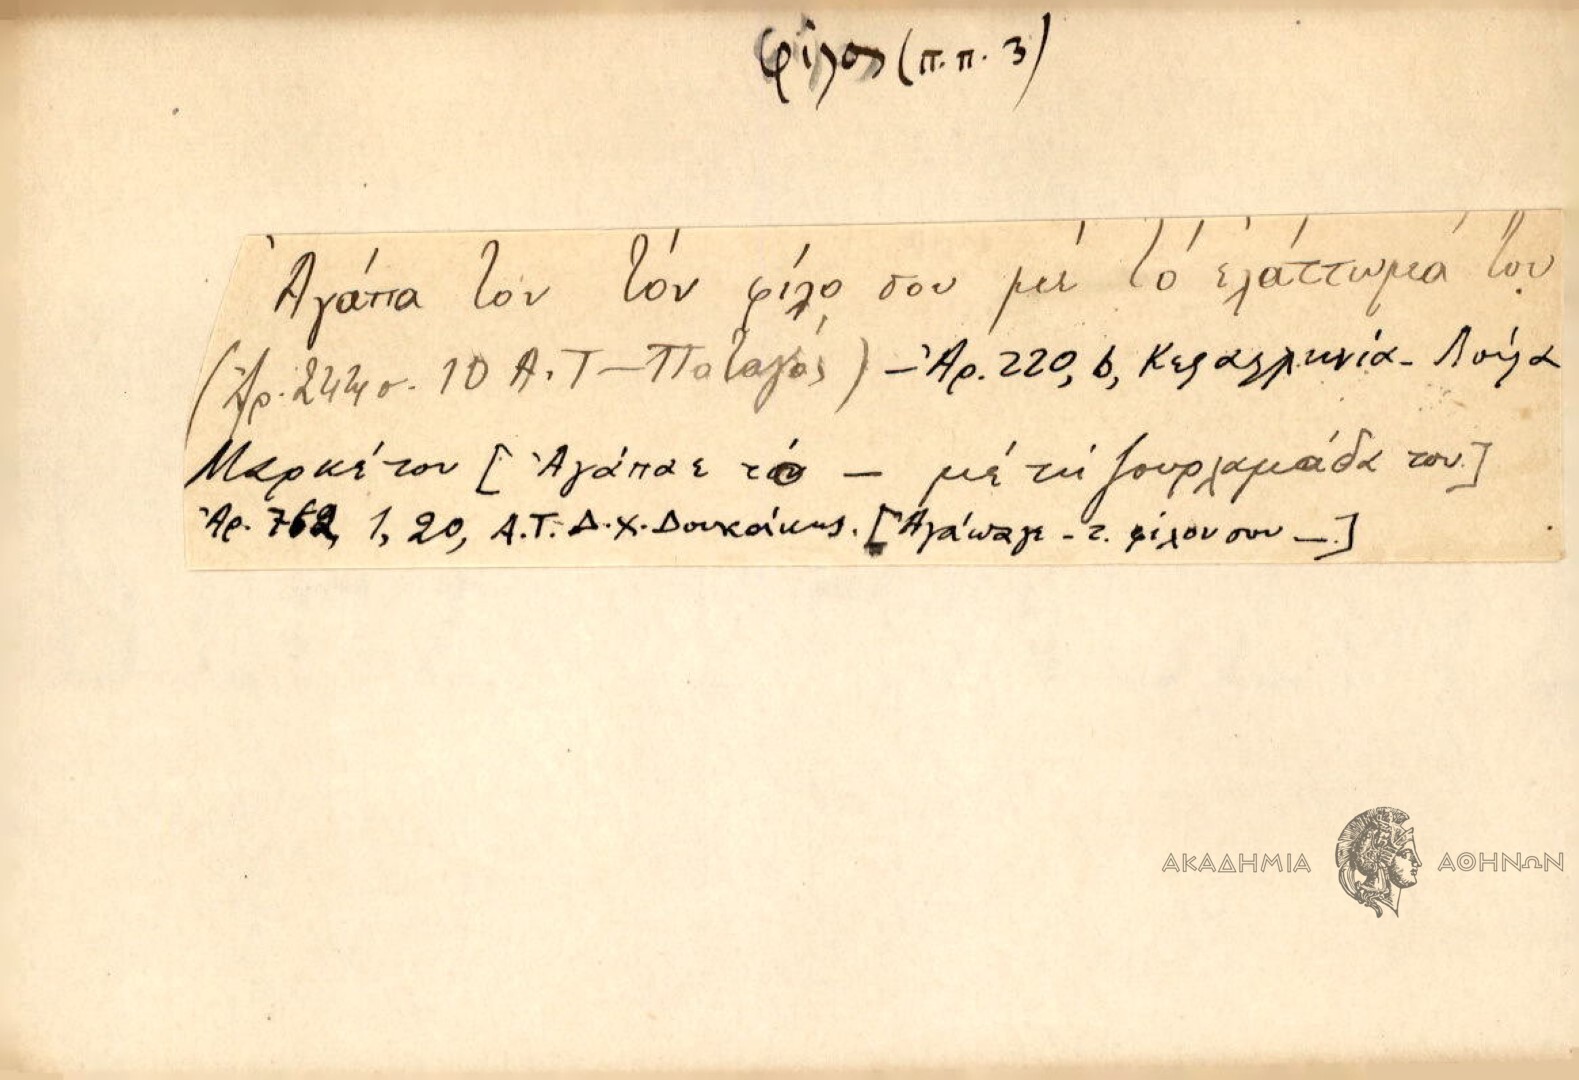 φίλος (π.π. 3)
Ἀγάπα τον τόν φίλο σου μέ τό ἐλάττωμά του
(Ἀρ. 244 σ. 10 Α.Τ – Παταγός) – Ἀρ. 220, 6, Κεφαλληνία – Λουΐζα
Μαρκέτου [Ἀγάπαε τόν – μέ τή ζουρλαμάδα του]
Ἀρ. 762, 1, 20, Α.Τ. Δ.Χ. Δουκάκης. [Ἀγάπαγε – τ. φίλον σου –.]
ΑΚΑΔΗΜΙΑ ΑΘΗΝΩΝ